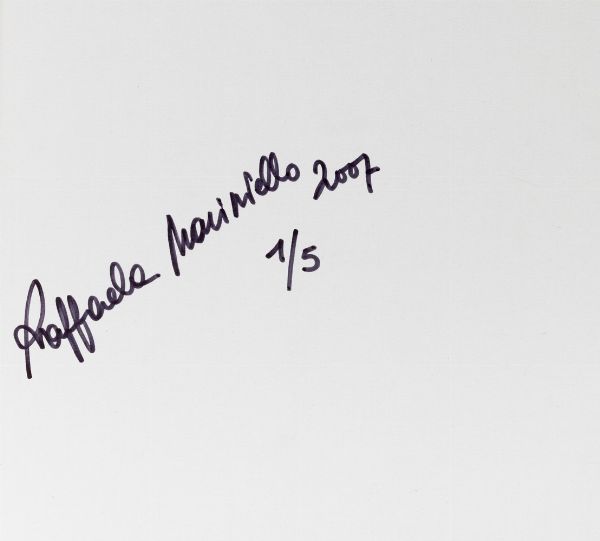 Raffaela Mariniello 2007
1/5